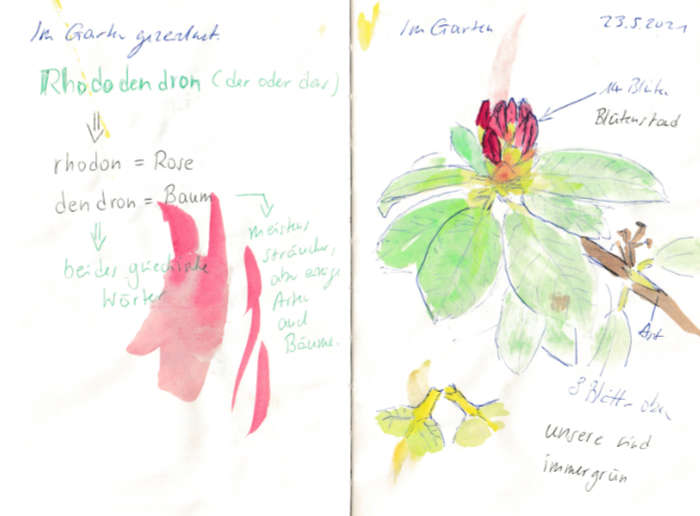 Im Garten gezeichnet.
Rhododendron (der oder das)
rhodon = Rose
dendron = Baum
beides griechische
Wörter
meistens
Sträucher,
aber einige
Arten
sind
Bäume.
Im Garten
23.5.2021
14 Blüten
Blütenstand
Ast
8 Blätter
unsere sind
immergrün